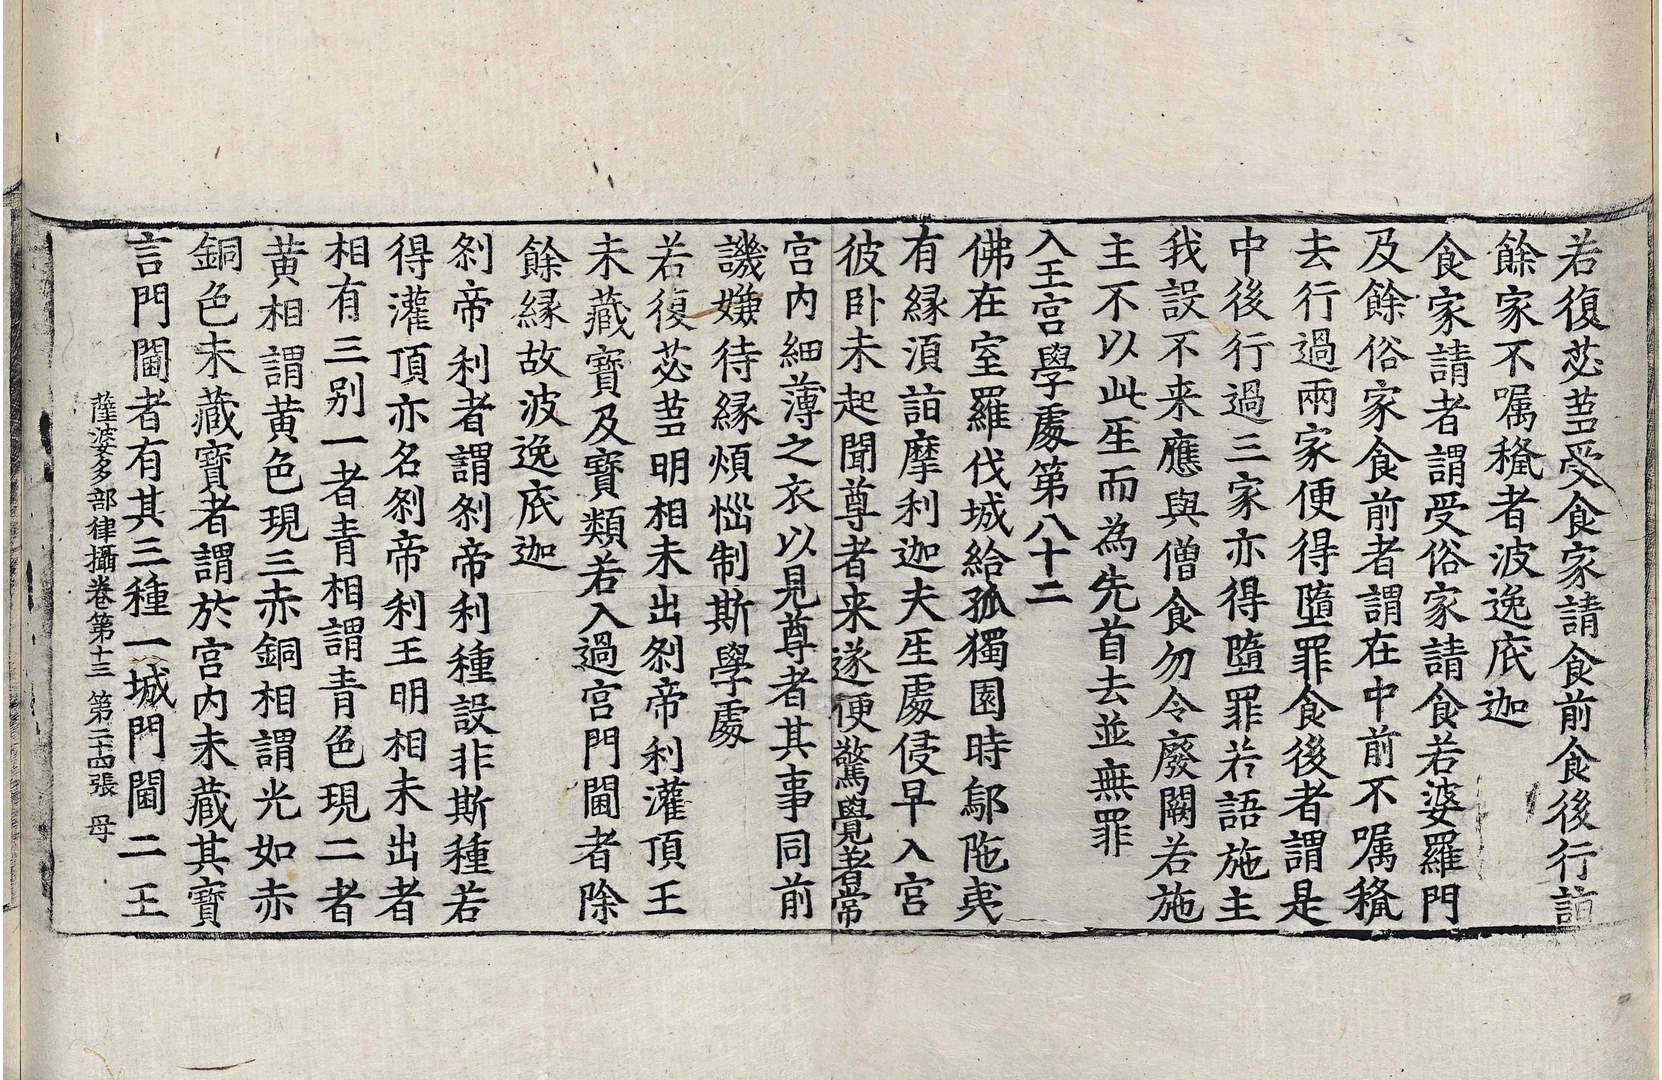 若復苾芻受食家請食前食後行詣
餘家不囑授者波逸底迦
食家請者謂受俗家請食若婆羅門
及餘俗家食前者謂在中前不囑授
去行過兩家便得墮罪食後者謂是
中後行過三家亦得墮罪若語施主
我設不来應與僧食勿令廢闕若施
主不以此坐而為先首去並無罪
入王宮學處第八十二
佛在室羅伐城給孤獨園時鄔陁夷
有縁湏詣摩利迦夫人䖏侵早入宮
彼卧未起聞尊者来遂便驚覺著常
宮內細薄之衣以見尊者其事同前
譏嫌待縁煩惱制斯學處
若復苾芻明相未出刹帝利灌頂王
未藏寶及寶類若入過宮門閫者除
餘縁故波逸底迦
刹帝利者謂刹帝利種設非斯種若
得灌頂亦名刹帝利王明相未出者
相有三别一者青相謂青色現二者
黃相謂黃色現三赤銅相謂光如赤
銅色未藏寶者謂於宮內未藏其寶
言門閫者有其三種一城門閫二王
薩婆多部律攝卷第十三 第二十四張 母